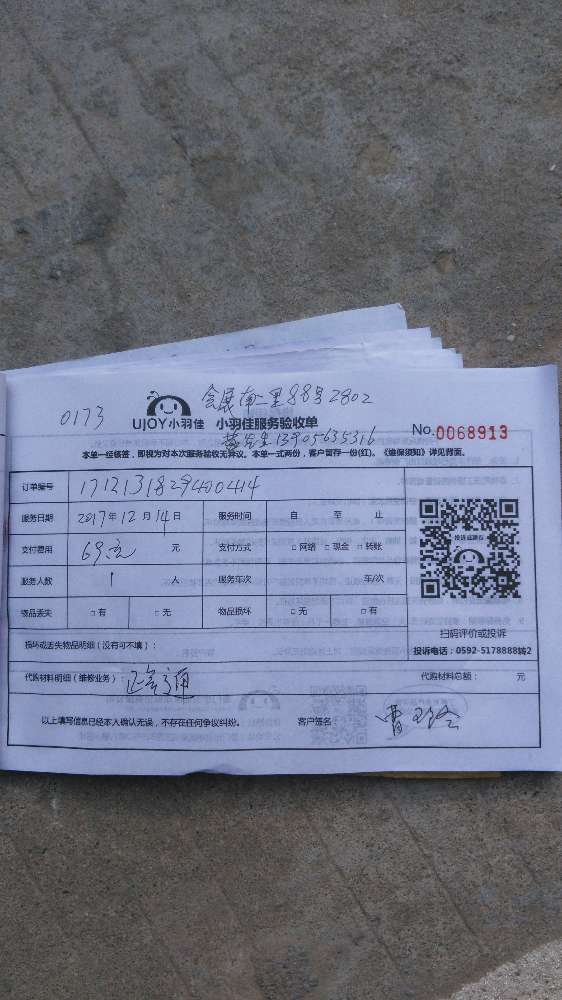 会展南二里88号2802
0173
UJOY小羽佳 小羽佳服务验收单
No.0068913
先生 13905635316
本单一经签署，即视为对本次服务验收无异议。本单一式两份，客户留存一份(红)。《维保须知》详见背面。
订单编号 1712131829400414
服务日期 2017年12月14日 服务时间 自 至 止
支付费用 69元 元 支付方式 □网络 □现金 □转账
服务人数 1 人 服务车次 车/次
物品丢失 □有 □无 物品损坏 □无 □有
扫码评价或投诉
损坏或丢失物品明细（没有可不填）：
投诉电话：0592-5178888转2
代购材料明细（维修业务）： 代购材料总额： 元
以上填写信息已经本人确认无误，不存在任何争议纠纷。 客户签名：